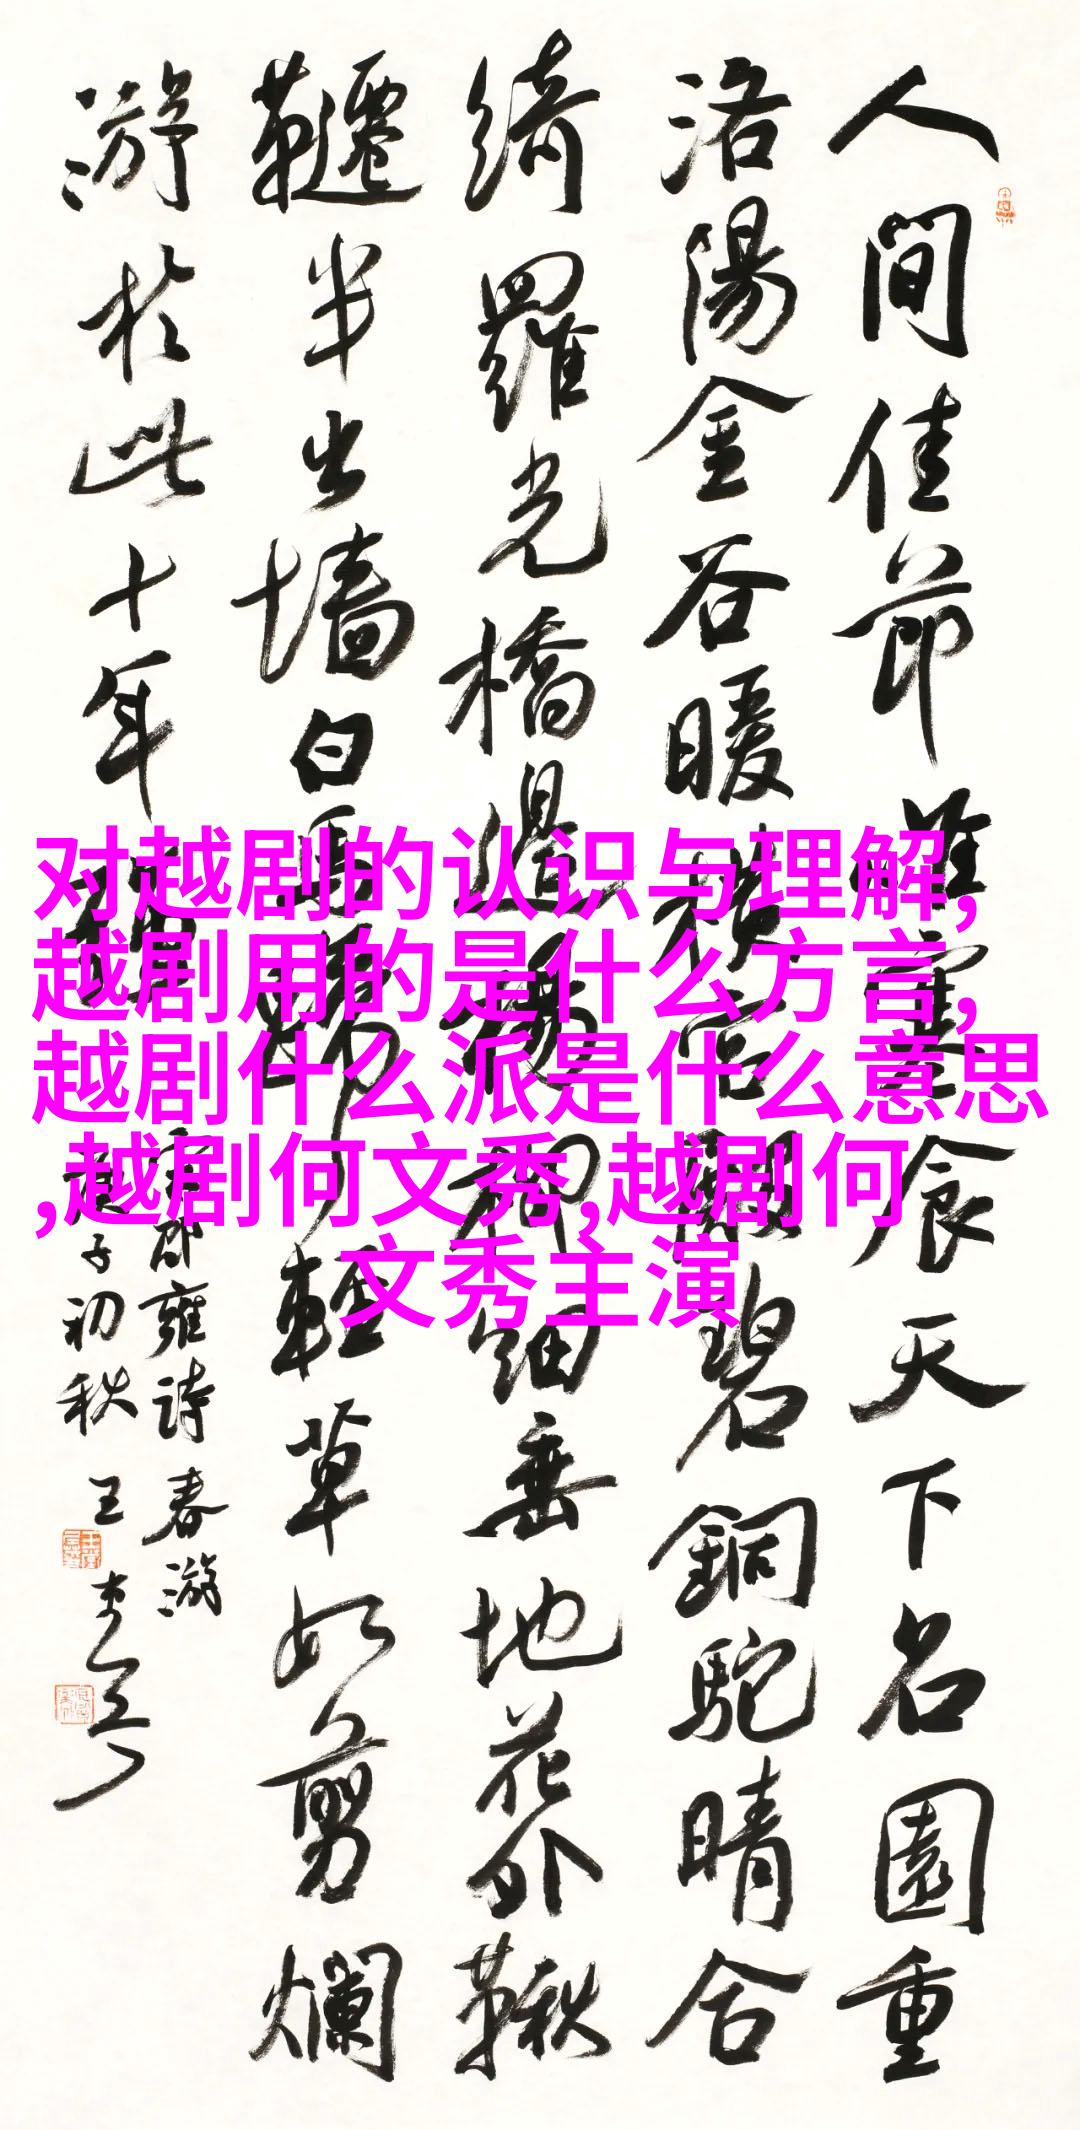 人間佳節唯寒食天下名園重
洛陽金谷暖橫宮殿碧銅駝晴合
綺羅光橋邊楊柳細垂地花外鞦
韆半出墻白馬蹄輕草如剪爛
游於此十年
宋邵雍詩春游
庚子初秋 王
对越剧的认识与理解,
越剧用的是什么方言,
越剧什么派是什么意思
,越剧何文秀,越剧何
文秀主演